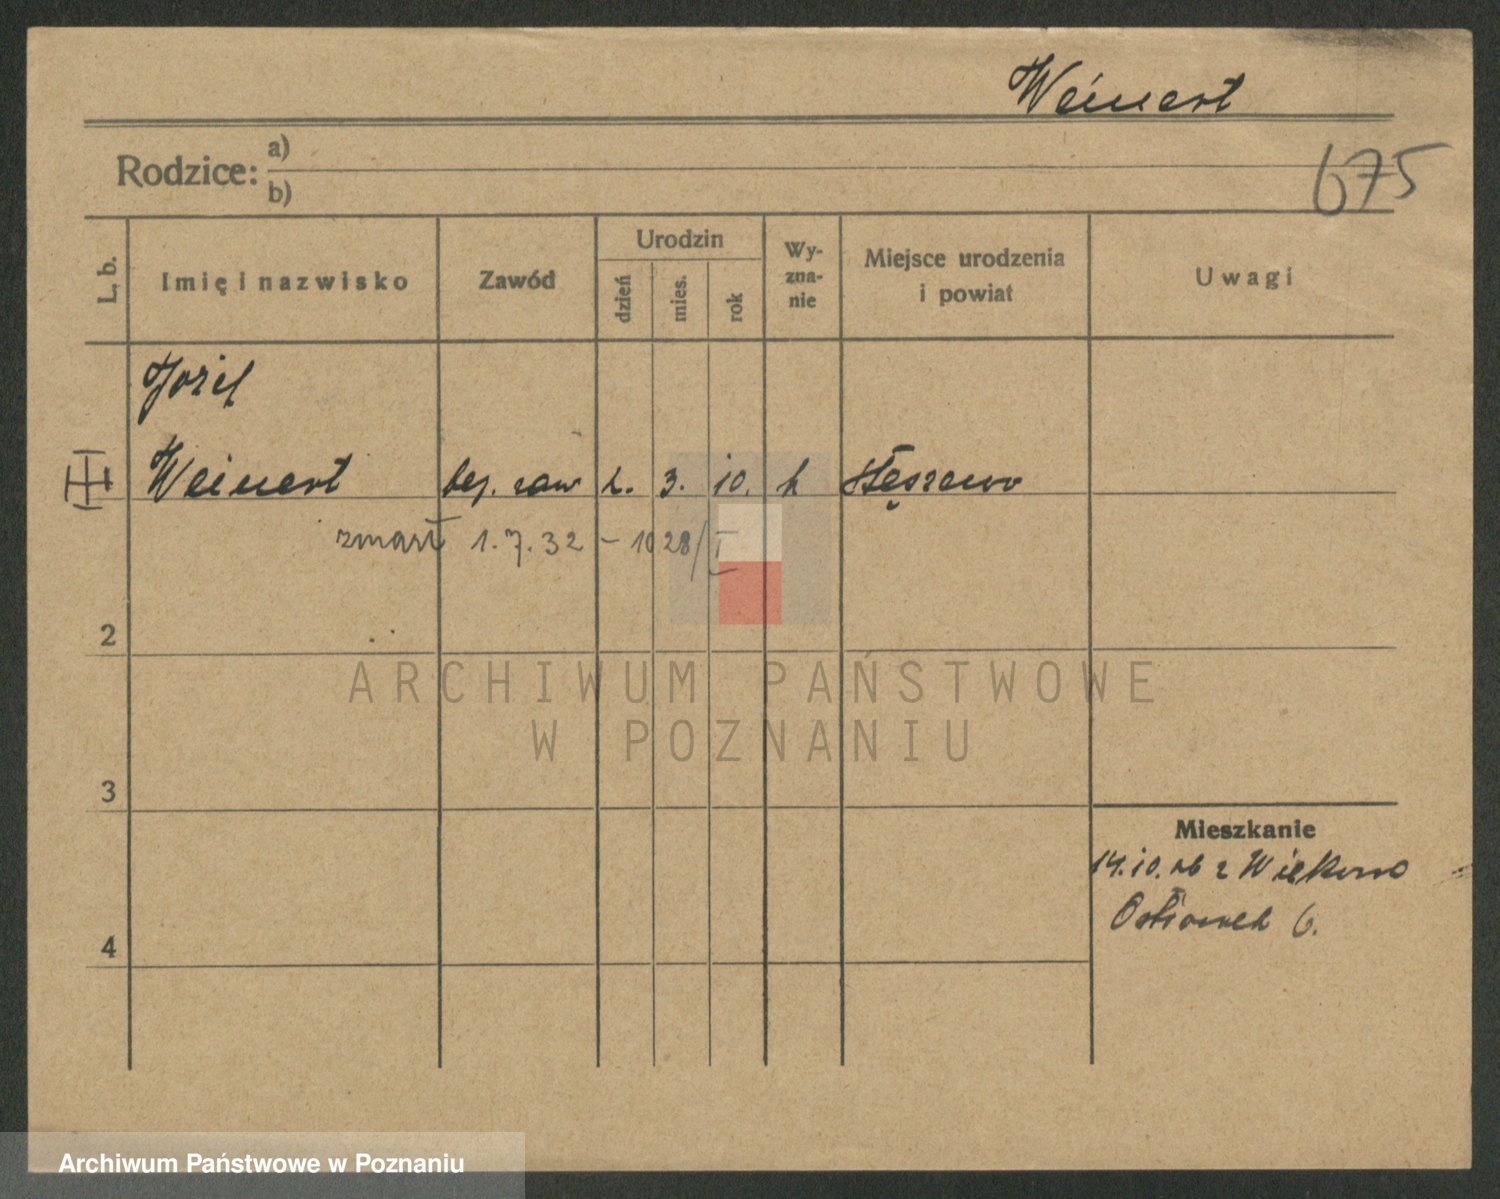 Weinert
675
Rodzice: a)
b)
L. b. Imię i nazwisko Zawód Urodzin dzień mies. rok Wy-zna-nie Miejsce urodzenia i powiat Uwagi
Józef
Weinert bez. zaw 2. 3. 10. k Stęszewo
zmarł 1.7.32 – 1028/I
2
3
4
Mieszkanie
14.10. z
6.
ARCHIWUM PAŃSTWOWE
W POZNANIU
Archiwum Państwowe w Poznaniu